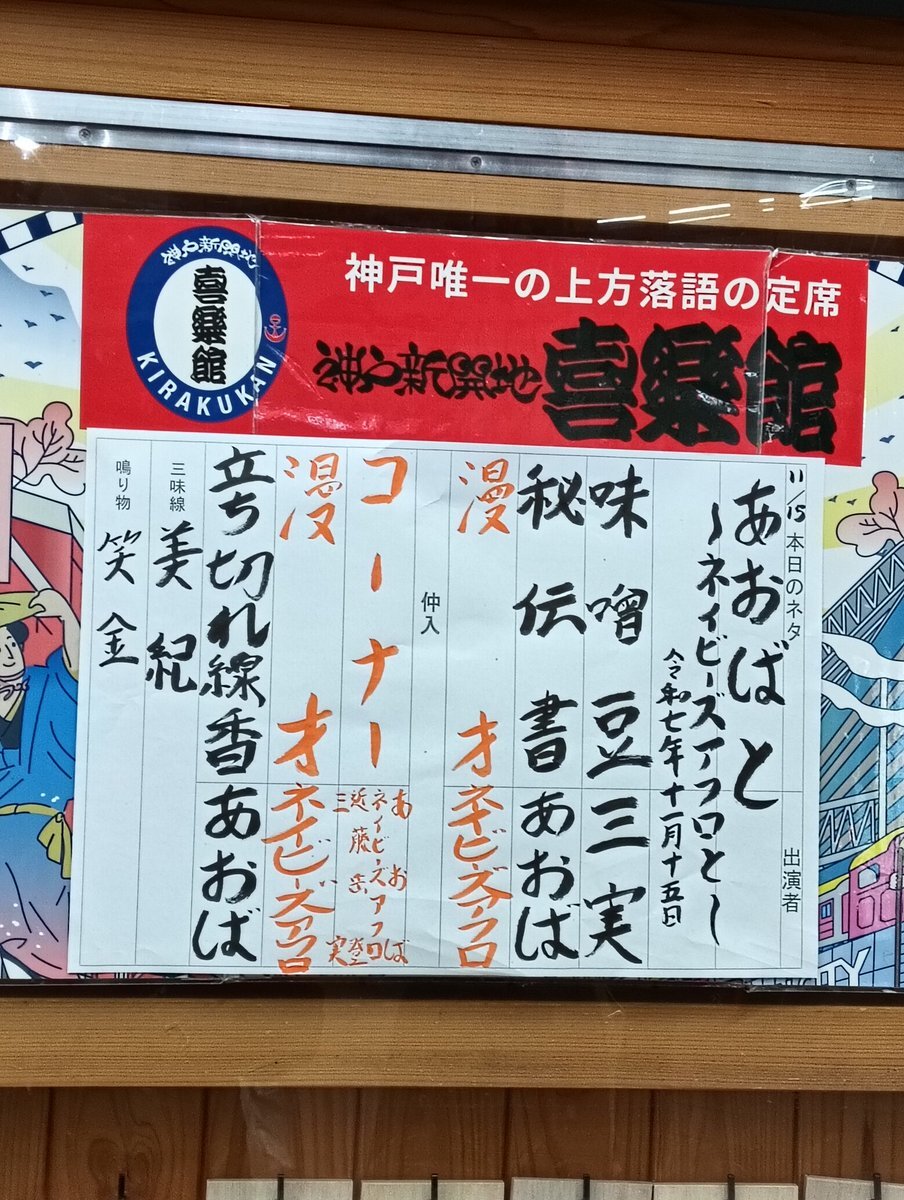 神戸唯一の上方落語の定席
神戸新開地
喜楽館
神戸新開地
喜楽館
KIRAKUKAN
11/15 本日のネタ
出演者
あおばと
〜ネイビーズアフロと〜
令和七年十一月十五日
味噌豆 三実
秘伝書 あおば
漫才 ネイビーズアフロ
仲入
コーナー
あおば
ネイビーズアフロ
三実
漫才 ネイビーズアフロ
立ち切れ線香 あおば
三味線 美紀
鳴り物 笑金